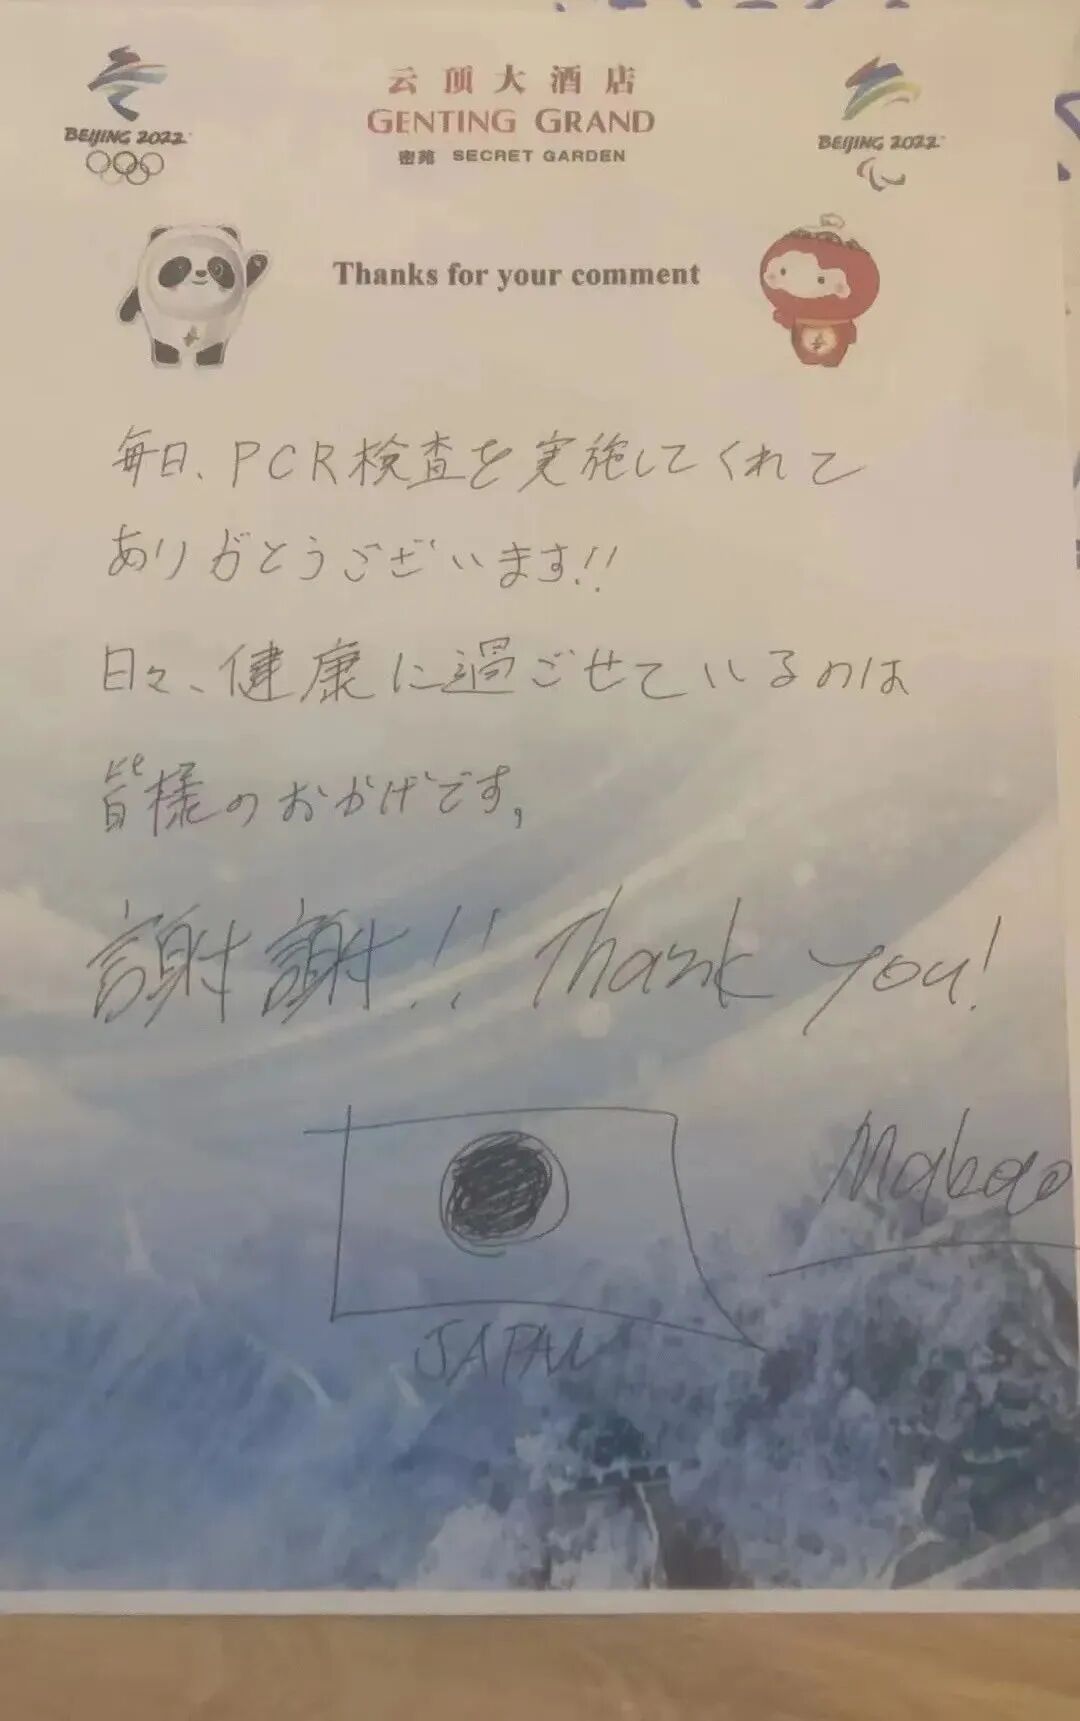 云顶大酒店
GENTING GRAND
密苑 SECRET GARDEN
BEIJING 2022
BEIJING 2022
Thanks for your comment
毎日、PCR検査を実施してくれて
ありがとうございます!!
日々、健康に過ごせているのは
皆様のおかげです。
謝謝!! Thank you!
JAPAN